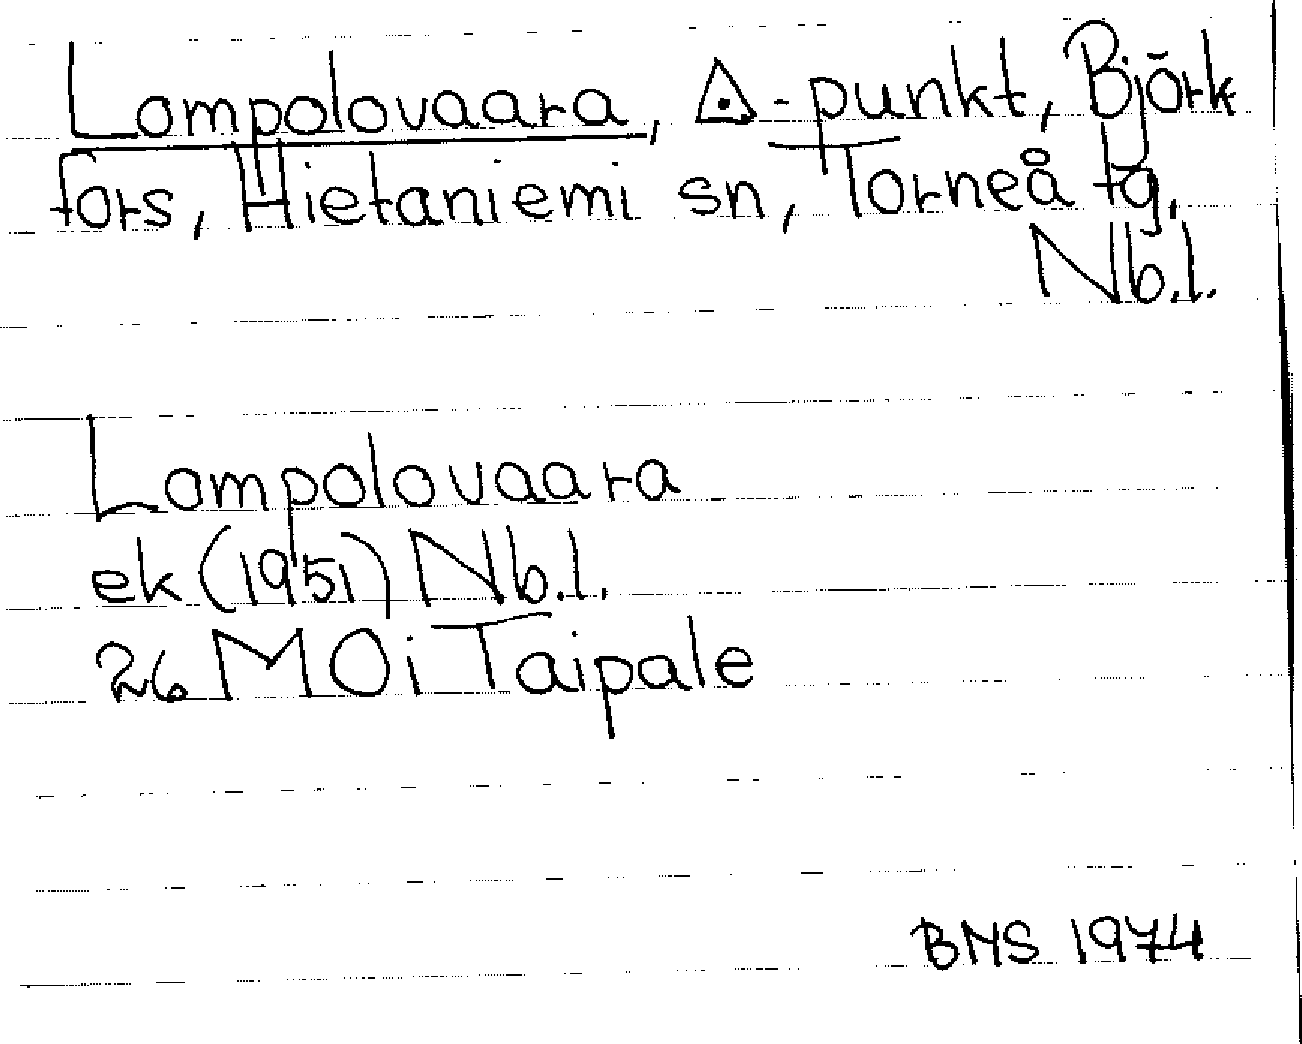 Lompolovaara, ◬-punkt, Björk
fors, Hietaniemi sn, Torneå tg,
Nb.l.
Lompolovaara
ek (1951) Nb.l.
26 MOi Taipale
BNS 1974